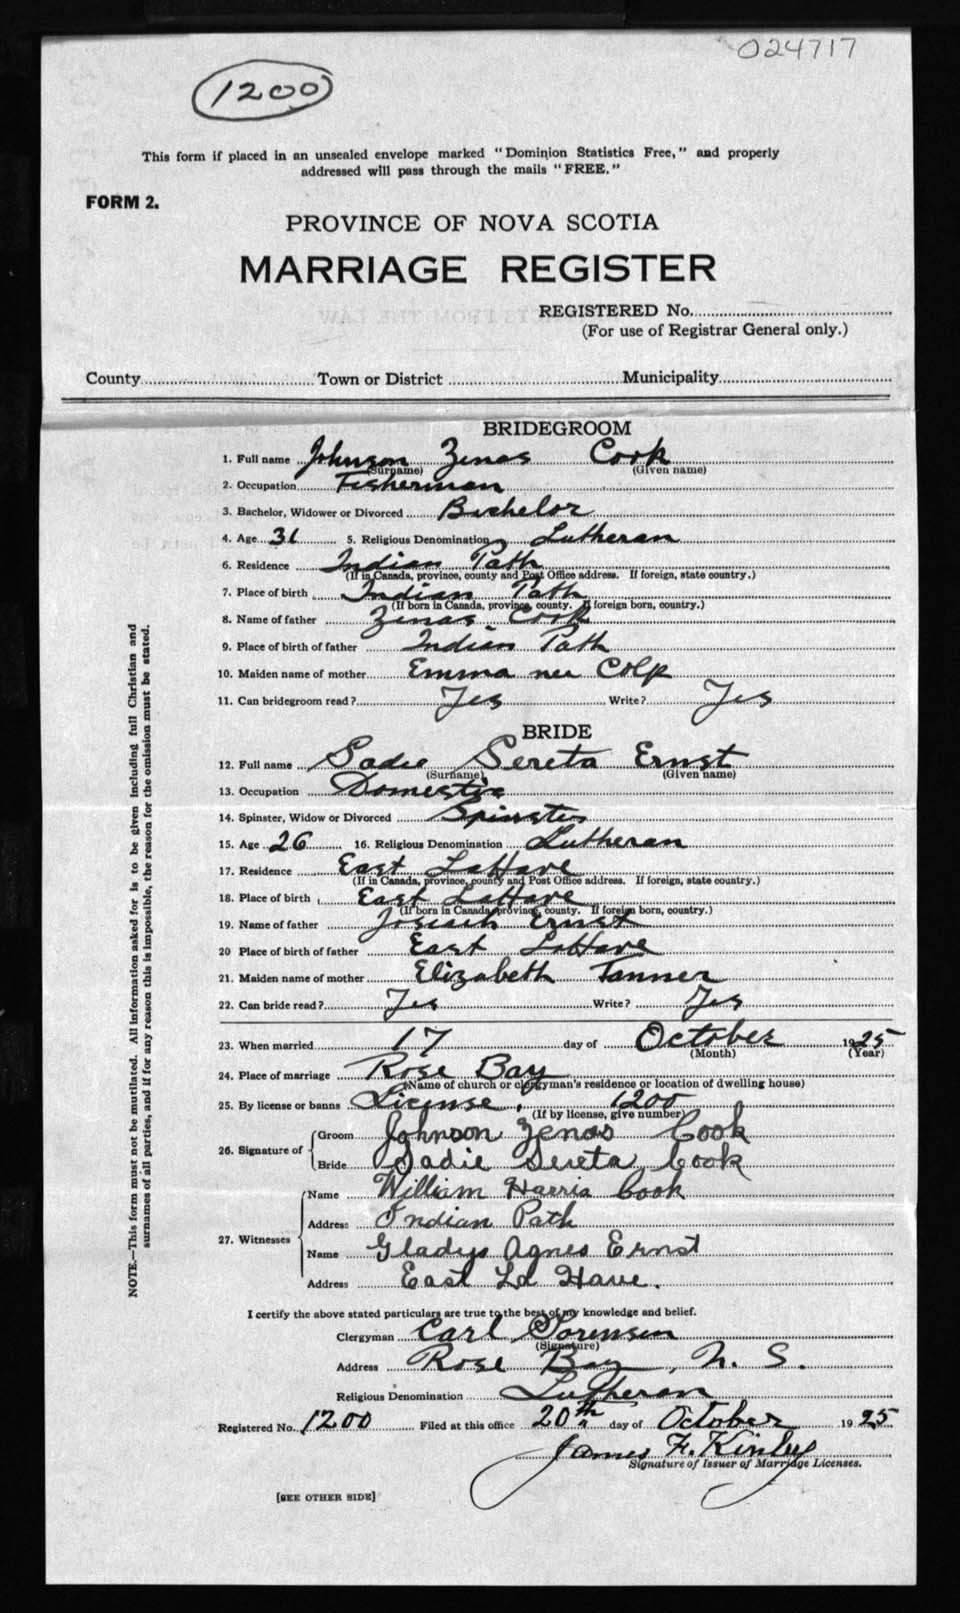 024717
1200
This form if placed in an unsealed envelope marked "Dominion Statistics Free," and properly
addressed will pass through the mails "FREE."
FORM 2.
PROVINCE OF NOVA SCOTIA
MARRIAGE REGISTER
REGISTERED No.
(For use of Registrar General only.)
County Town or District Municipality
BRIDEGROOM
1. Full name Johnson Zenas Cook
(Surname) (Given name)
2. Occupation Fisherman
3. Bachelor, Widower or Divorced Bachelor
4. Age 31 5. Religious Denomination Lutheran
6. Residence Indian Path
(If in Canada, province, county and Post Office address. If foreign, state country.)
7. Place of birth Indian Path
(If born in Canada, province, county. If foreign born, country.)
8. Name of father Zenas Cook
9. Place of birth of father Indian Path
10. Maiden name of mother Emma nee Colp
11. Can bridegroom read? Yes Write? Yes
BRIDE
12. Full name Sadie Sereta Ernst
(Surname) (Given name)
13. Occupation Domestic
14. Spinster, Widow or Divorced Spinster
15. Age 26 16. Religious Denomination Lutheran
17. Residence East LaHave
(If in Canada, province, county and Post Office address. If foreign, state country.)
18. Place of birth East LaHave
(If born in Canada, province, county. If foreign born, country.)
19. Name of father Josiah Ernst
20 Place of birth of father East LaHave
21. Maiden name of mother Elizabeth Tanner
22. Can bride read? Yes Write? Yes
23. When married 17 day of October 1925
(Month) (Year)
24. Place of marriage Rose Bay
(Name of church or clergyman's residence or location of dwelling house)
25. By license or banns License, 1200
(If by license, give number)
26. Signature of Groom Johnson Zenas Cook
Bride Sadie Sereta Cook
27. Witnesses Name William Harris Cook
Address Indian Path
Name Gladys Agnes Ernst
Address East La Have.
I certify the above stated particulars are true to the best of my knowledge and belief.
Clergyman Carl Sorensen
(Signature)
Address Rose Bay, N. S.
Religious Denomination Lutheran
Registered No. 1200 Filed at this office 20th day of October 1925
James F. Kinley
Signature of Issuer of Marriage Licenses.
[SEE OTHER SIDE]
NOTE.—This form must not be mutilated. All information asked for is to be given including full Christian and
surnames of all parties, and if for any reason this is impossible, the reason for the omission must be stated.